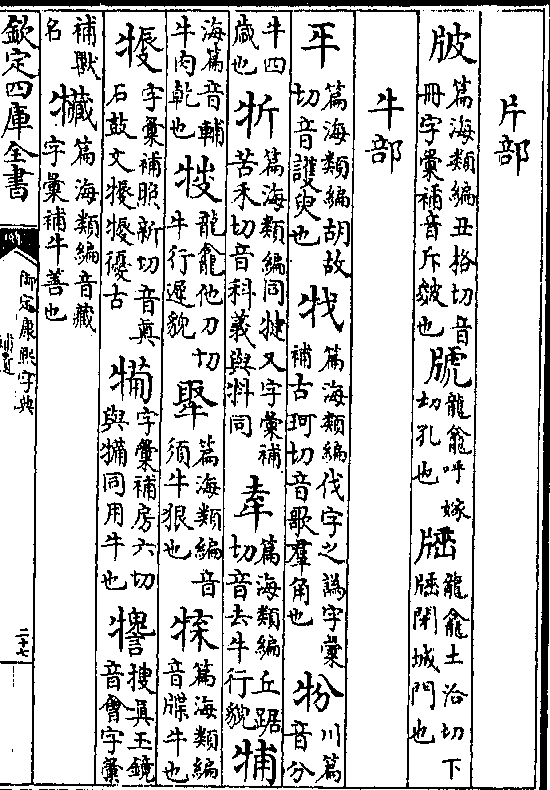 片部
㸟篇海類編丑格切音
冊字彙補音斥皴也䶂龍龕呼嫁
切孔也𤗏龍龕土洽切下
牐閉城門也
牛部
篇海類編胡故
切音護臾也
篇海類編伐字之譌字彙
補古珂切音歌羣角也
牥川篇
音分
牛四
歲也
篇海類編同㸿又字彙補
苦禾切音科義與科同
篇海類編丘踞
切音去牛行貌
海篇音輔
牛肉乾也
龍龕他刀切
牛行遲貌
篇海類編音
須牛狠也
篇海類編
音牒牛也
字彙補照新切音眞
石鼓文
字彙補房六切
與犕同用牛也
搜眞玉鏡
音會字彙
補獸
名
篇海類編音藏
字彙補牛善也
欽定四庫全書
御定康熙字典
補遺
二十七